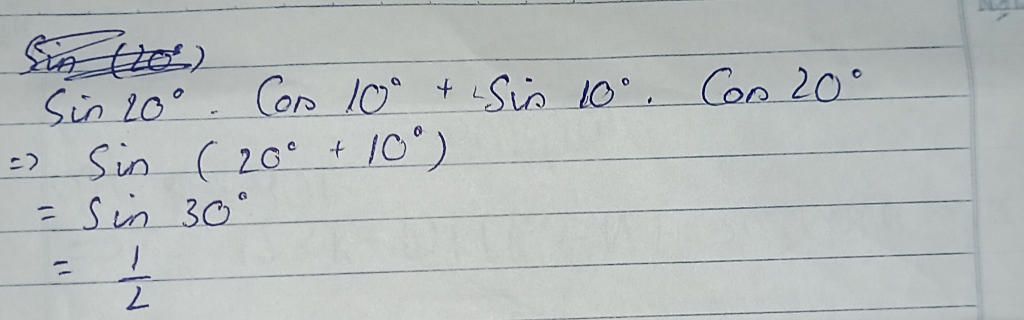 Sin (20°)
Sin 20° . Cos 10° + Sin 10° . Cos 20°
=> Sin (20° + 10°)
= Sin 30°
= 1/2